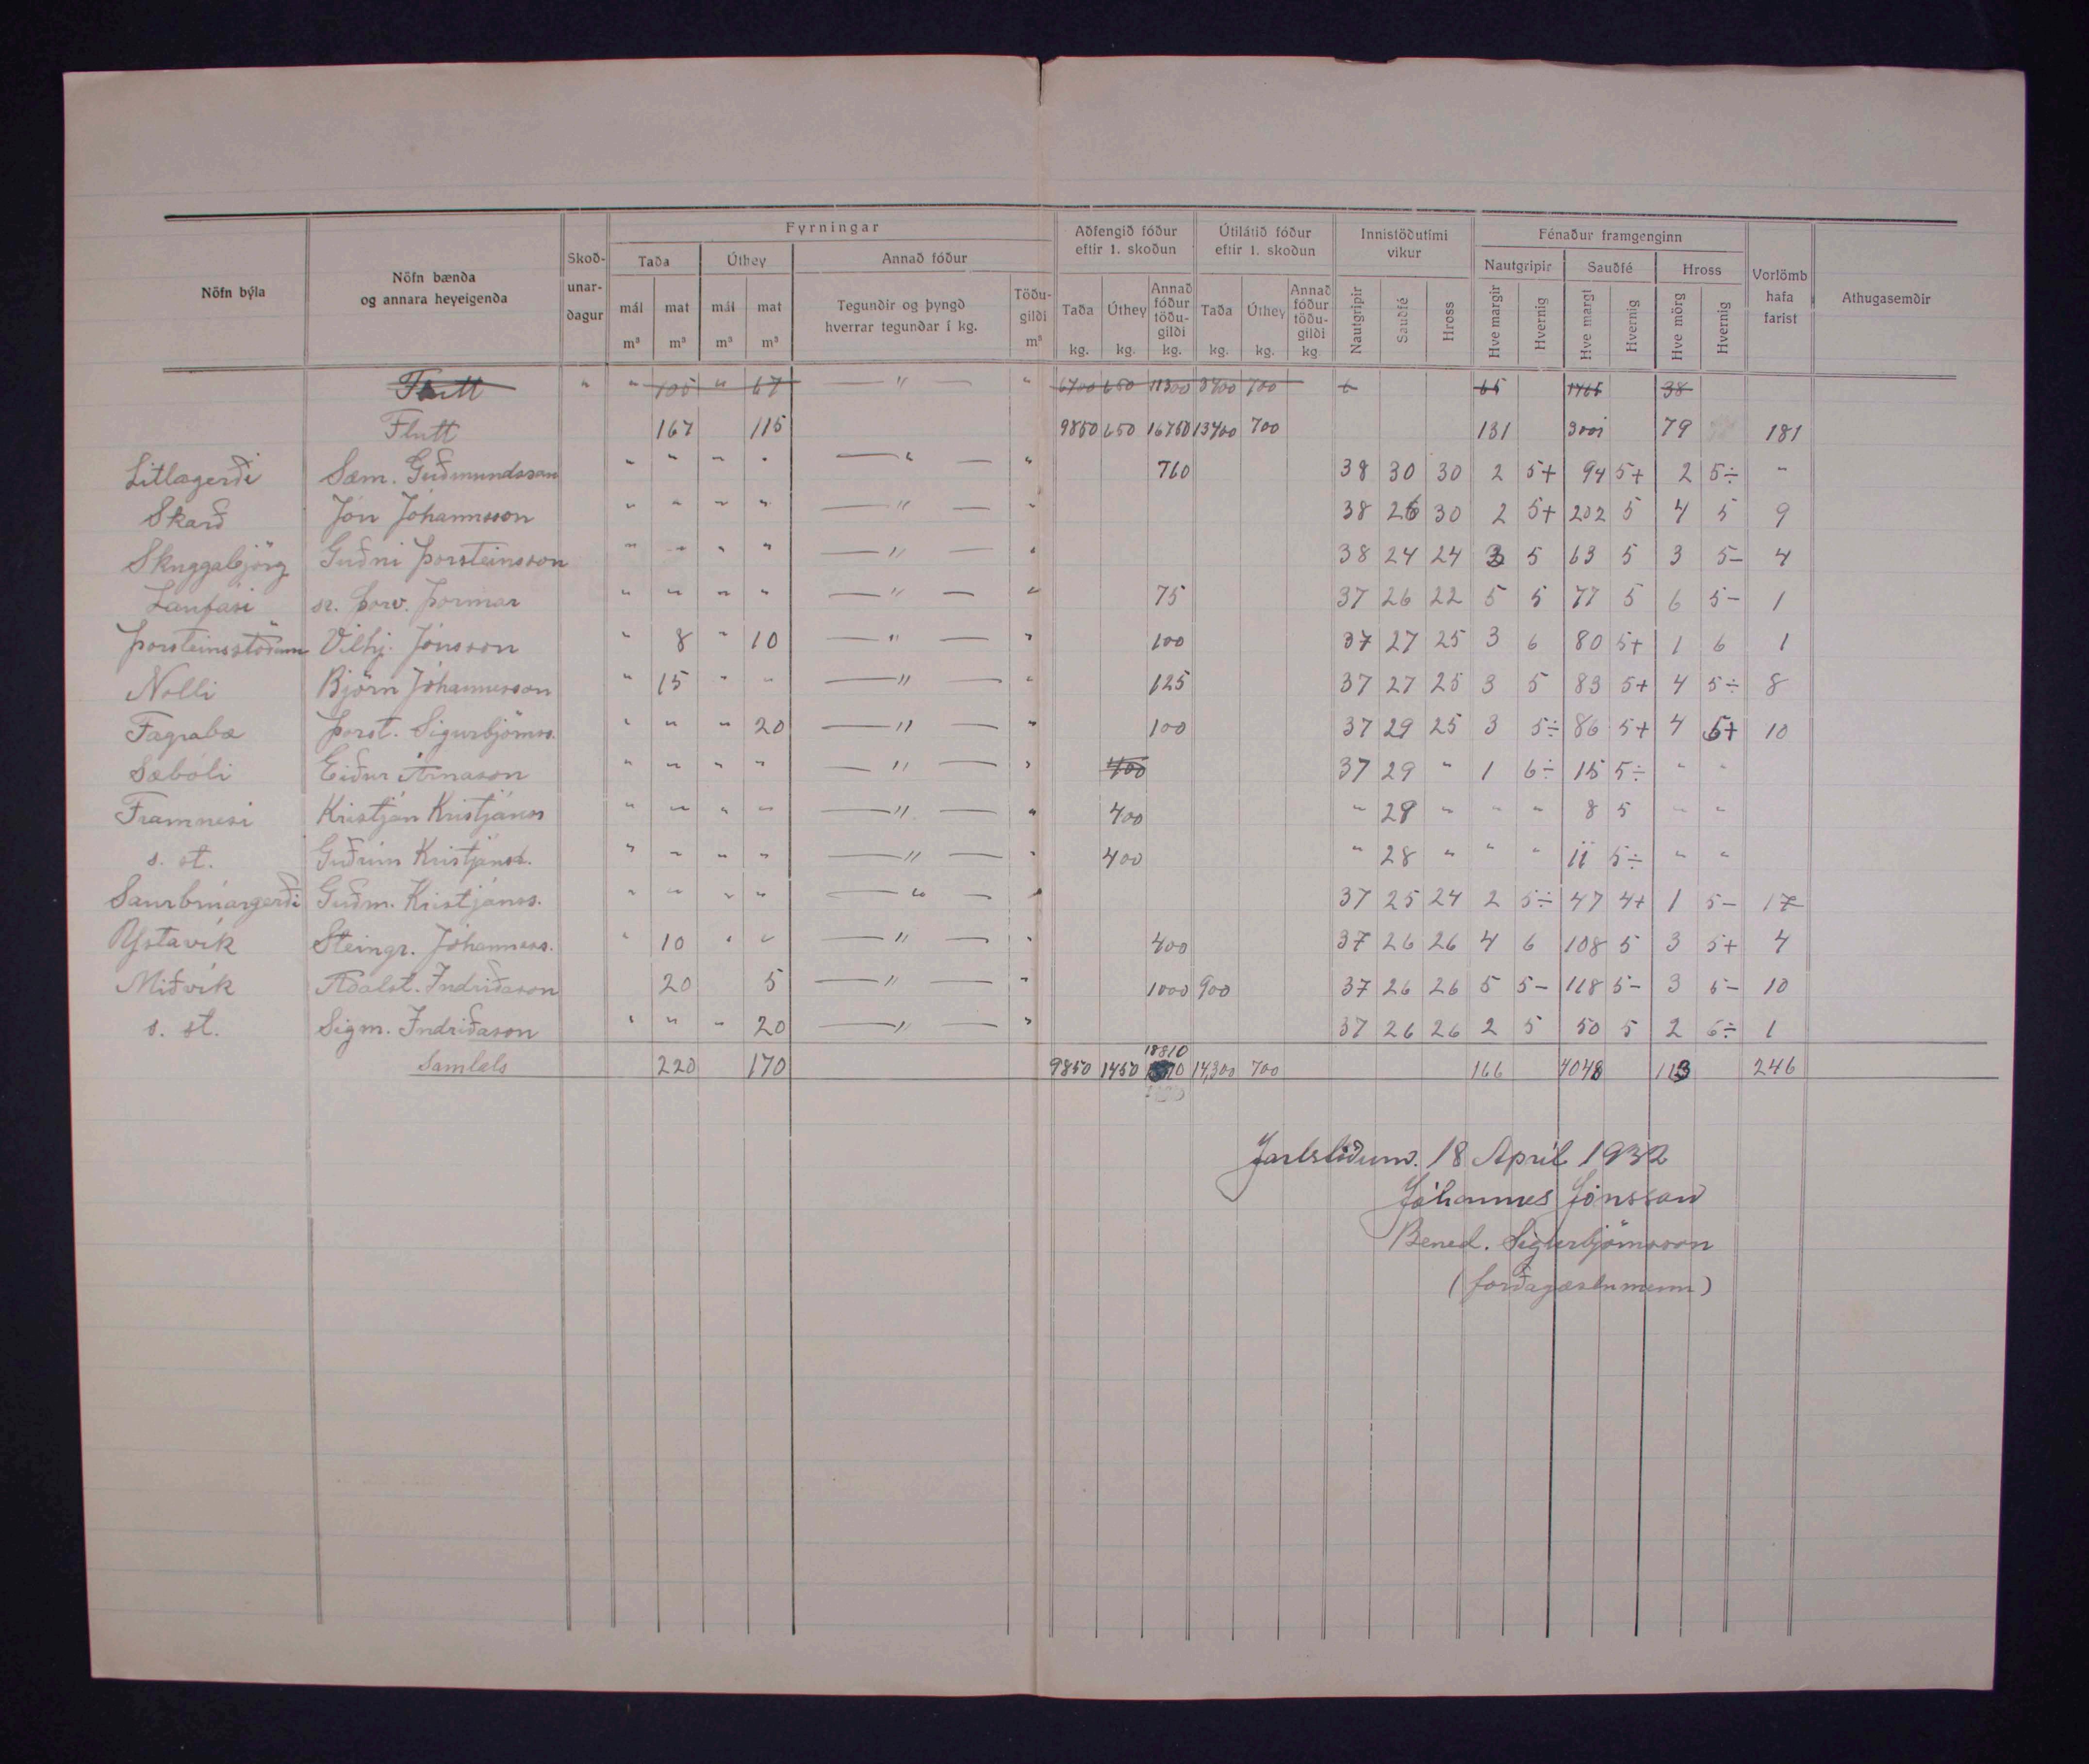 Nöfn býla | Nöfn bænda og annara heyeigenda | Skoðunardagur | Fyrningar | Aðfengið fóður eftir 1. skoðun | Útilátið fóður eftir 1. skoðun | Innistöðutími vikur | Fénaður framgenginn | Vorlömb hafa farist | Athugasemðir
Taða | Úthey | Annað fóður | Nautgripir | Sauðfé | Hross
mál m³ | mat m³ | mál m³ | mat m³ | Tegundir og þyngð hverrar tegundar í kg. | Töðugildi m³ | Taða kg. | Úthey kg. | Annað fóður töðugildi kg. | Taða kg. | Úthey kg. | Annað fóður töðugildi kg | Nautgripir | Sauðfé | Hross | Hve margir | Hvernig | Hve margt | Hvernig | Hve mörg | Hvernig
Flutt " " 105 " 67 — " — " 6700 650 11300 700 6 65 38
Flutt 167 115 9850 650 16750 13400 700 131 3001 79 181
Litlagerði Sæm. Guðmundsson " " " " — " — " 760 38 30 30 2 5+ 94 5+ 2 5÷ "
Skarð Jón Jóhannsson " " " " — " — " 38 26 30 2 5+ 202 5 4 5 9
Skuggabjörg Guðni Þorsteinsson " " " " — " — " 38 24 24 3 5 63 5 3 5- 4
Laufási sr. Þorv. Þormar " " " " — " — " 75 37 26 22 5 5 77 5 6 5- 1
Þorsteinsstöðum Vilhj. Jónsson " 8 " 10 — " — " 100 37 27 25 3 6 80 5+ 1 6 1
Nolli Björn Jóhannesson " 15 " " — " — " 125 37 27 25 3 5 83 5+ 4 5÷ 8
Fagrabæ Þorst. Sigurbjörnss. " " " 20 — " — " 100 37 29 25 3 5÷ 86 5+ 4 5+ 10
Sæbóli Eiður Árnason " " " " — " — " 400 37 29 " 1 6÷ 15 5÷ " "
Framnesi Kristján Kristjánss " " " " — " — " 400 " 28 " " " 8 5 " "
s. st. Guðrún Kristjánsd. " " " " — " — " 400 " 28 " " " 11 5÷ " "
Saurbrúargerði Guðm. Kristjánss. " " " " — " — " 37 25 24 2 5÷ 47 4+ 1 5- 17
Ystavík Steingr. Jóhanness. " 10 " " — " — " 400 37 26 26 4 6 108 5 3 5+ 4
Miðvík Aðalst. Indriðason 20 5 — " — " 1000 900 37 26 26 5 5- 118 5- 3 5- 10
s. st. Sigm. Indriðason " " " 20 — " — " 37 26 26 2 5 50 5 2 5÷ 1
Samtals 220 170 9850 1450 18810 14,300 700 166 4048 113 246
18 Apríl 1932
Jóhannes Jónsson
Bened. Sigurbjörnsson
(forðagæslumenn)